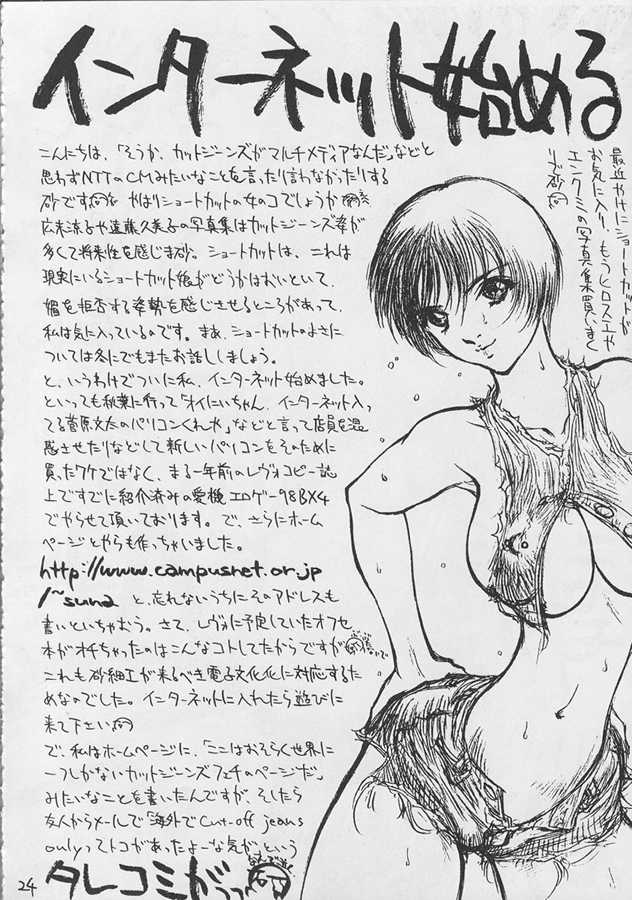 インターネット始める
こんにちは、「そうか、カットジーンズがマルチメディアなんだ」などと
思わずNTTのCMみたいなことを言ったり言わなかったりする
砂です やはりショートカットの女のコでしょうか
広末涼子や遠藤久美子の写真集はカットジーンズ姿が
多くて将来性を感じま砂。ショートカットは、これは
現実にいるショートカット娘がどうかはおいといて、
媚を拒否する姿勢を感じさせるところがあって、
私は気に入っているのです。まあ、ショートカットのよさに
ついては冬にでもまたお話ししましょう。
と、いうわけでついに私、インターネット始めました。
といっても秋葉に行って「オイにいちゃん、インターネット入っ
てる菅原文太のパソコンくれや」などと言って店員を混
惑させたりなどして新しいパソコンをそのために
買ったワケではなく、まる一年前のレヴォコピー誌
上ですでに紹介済みの愛機エロゲー98BX4
でやらせて頂いております。で、さらにホーム
ページとやらも作っちゃいました。
http://www.campusnet.or.jp
/~suna と、忘れないうちにそのアドレスも
書いといちゃおう。さて、レヴォに予定していたオフセ
本がオチちゃったのはこんなコトしてたからですが
これも砂細工が来るべき電子文化化に対応するた
めなのでした。インターネットに入れたら遊びに
来て下さい
で、私はホームページに、「ここはおそらく世界に
一つしかないカットジーンズフェチのページだ」
みたいなことを書いたんですが、そしたら
友人からメールで「海外でCut-off jeans
onlyってトコがあったよーな気が」という
タレコミがっっ
最近やけにショートカットが
お気に入り、もうヒロスエや
エンクミの写真集買いまく
りざ砂
24